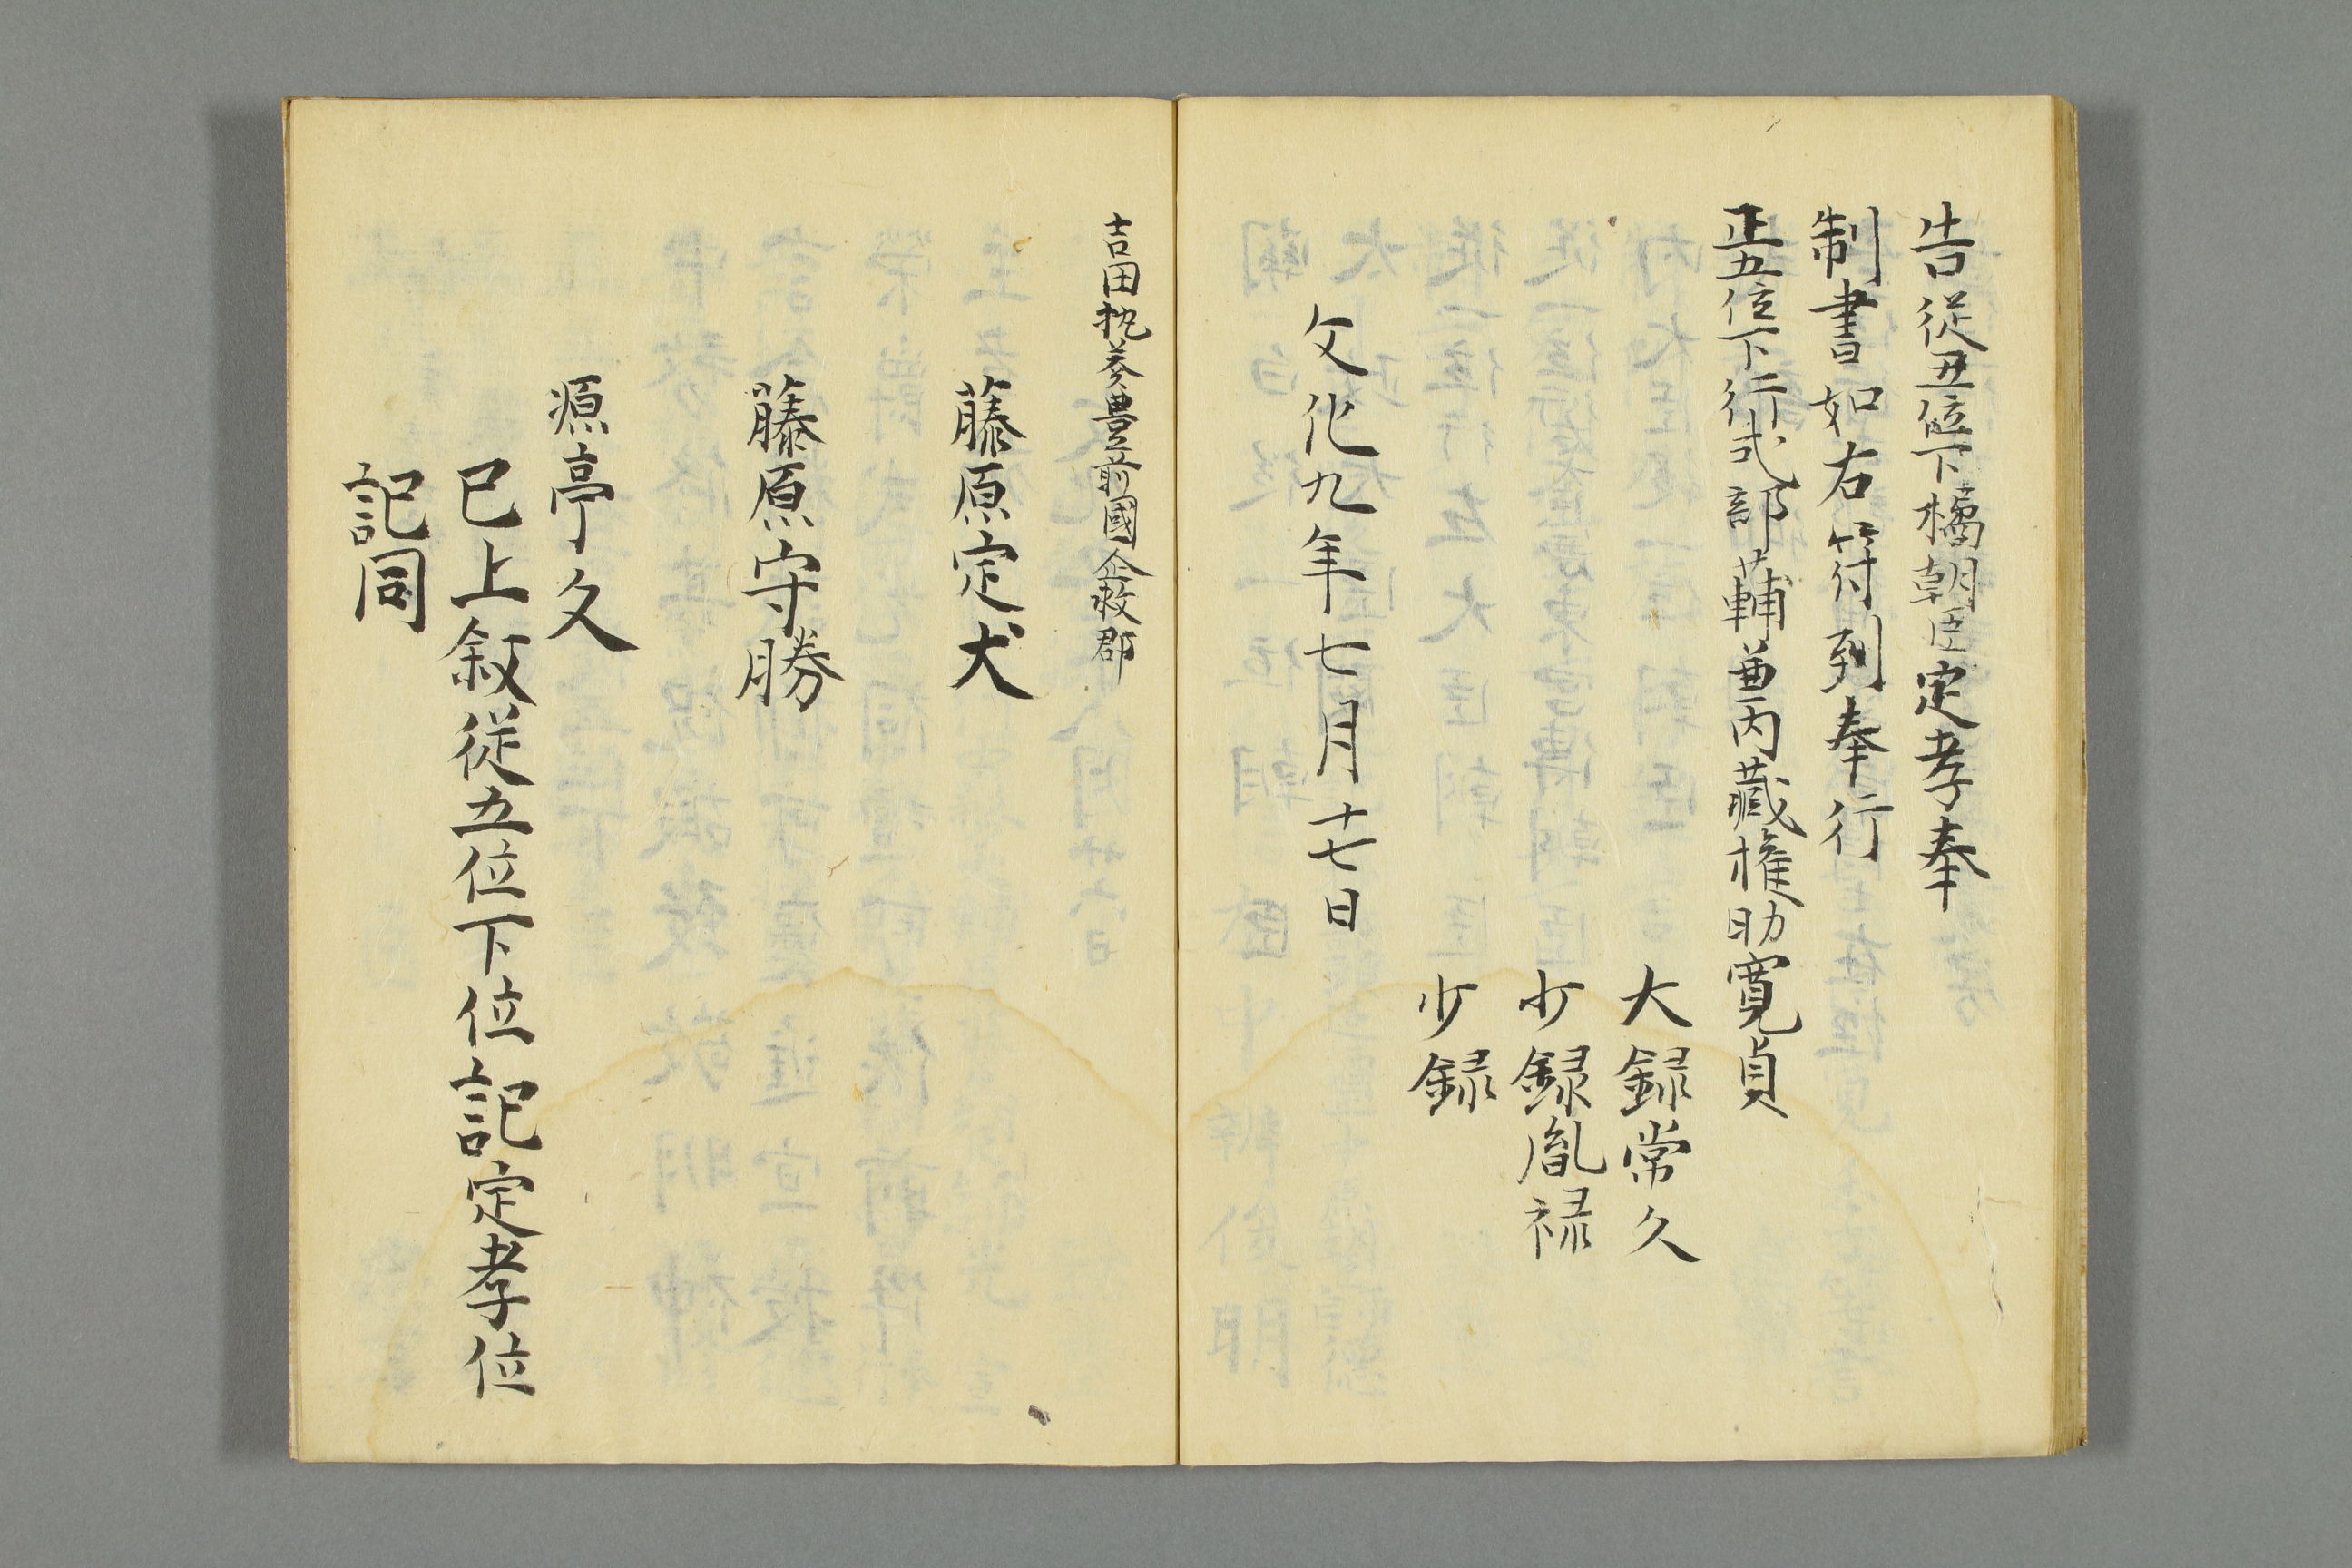 告従五位下橘朝臣定孝奉
制書如右符到奉行
正五位下行式部少輔兼内蔵権助寛貞
大録常久
少録胤禄
少録
文化九年七月十七日
吉田執奏豊前國企救郡
藤原定犬
藤原守勝
源亭久
已上叙従五位下位記定孝位
記同